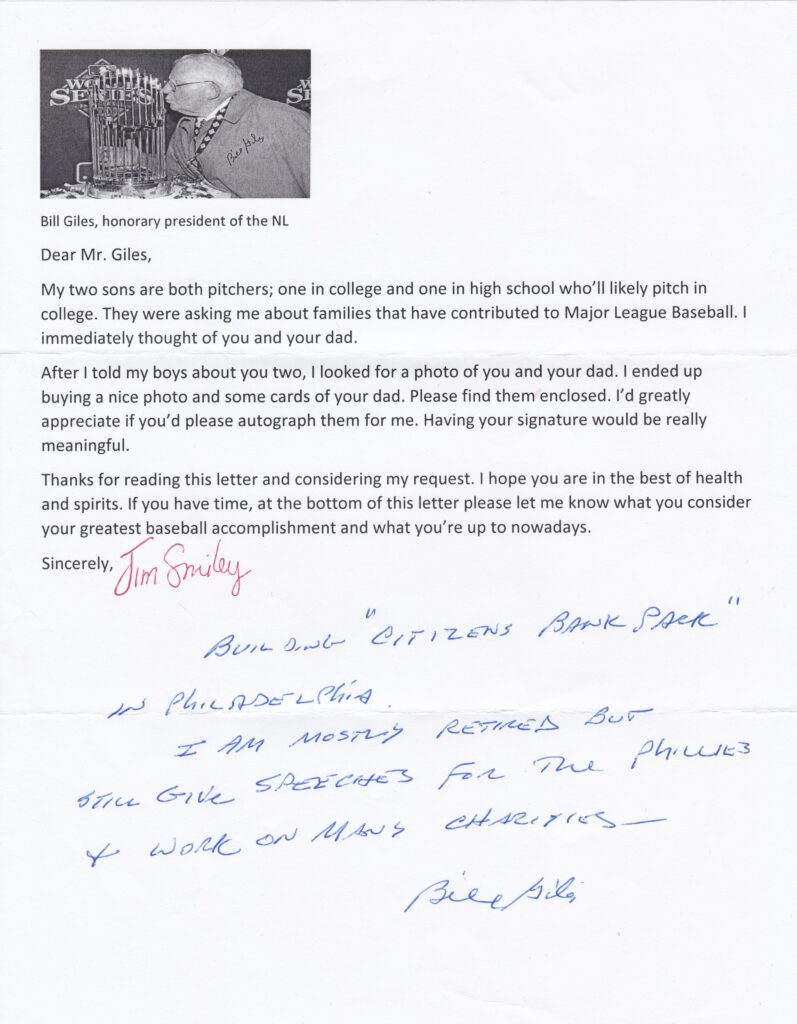 WORLD
SERIES
Bill Giles
Bill Giles, honorary president of the NL
Dear Mr. Giles,
My two sons are both pitchers; one in college and one in high school who'll likely pitch in
college. They were asking me about families that have contributed to Major League Baseball. I
immediately thought of you and your dad.
After I told my boys about you two, I looked for a photo of you and your dad. I ended up
buying a nice photo and some cards of your dad. Please find them enclosed. I'd greatly
appreciate if you'd please autograph them for me. Having your signature would be really
meaningful.
Thanks for reading this letter and considering my request. I hope you are in the best of health
and spirits. If you have time, at the bottom of this letter please let me know what you consider
your greatest baseball accomplishment and what you're up to nowadays.
Sincerely, Jim Smiley
BUILDING "CITIZENS BANK PARK"
IN PHILADELPHIA.
I AM MOSTLY RETIRED BUT
STILL GIVE SPEECHES FOR THE PHILLIES
& WORK ON MANY CHARITIES—
Bill Giles